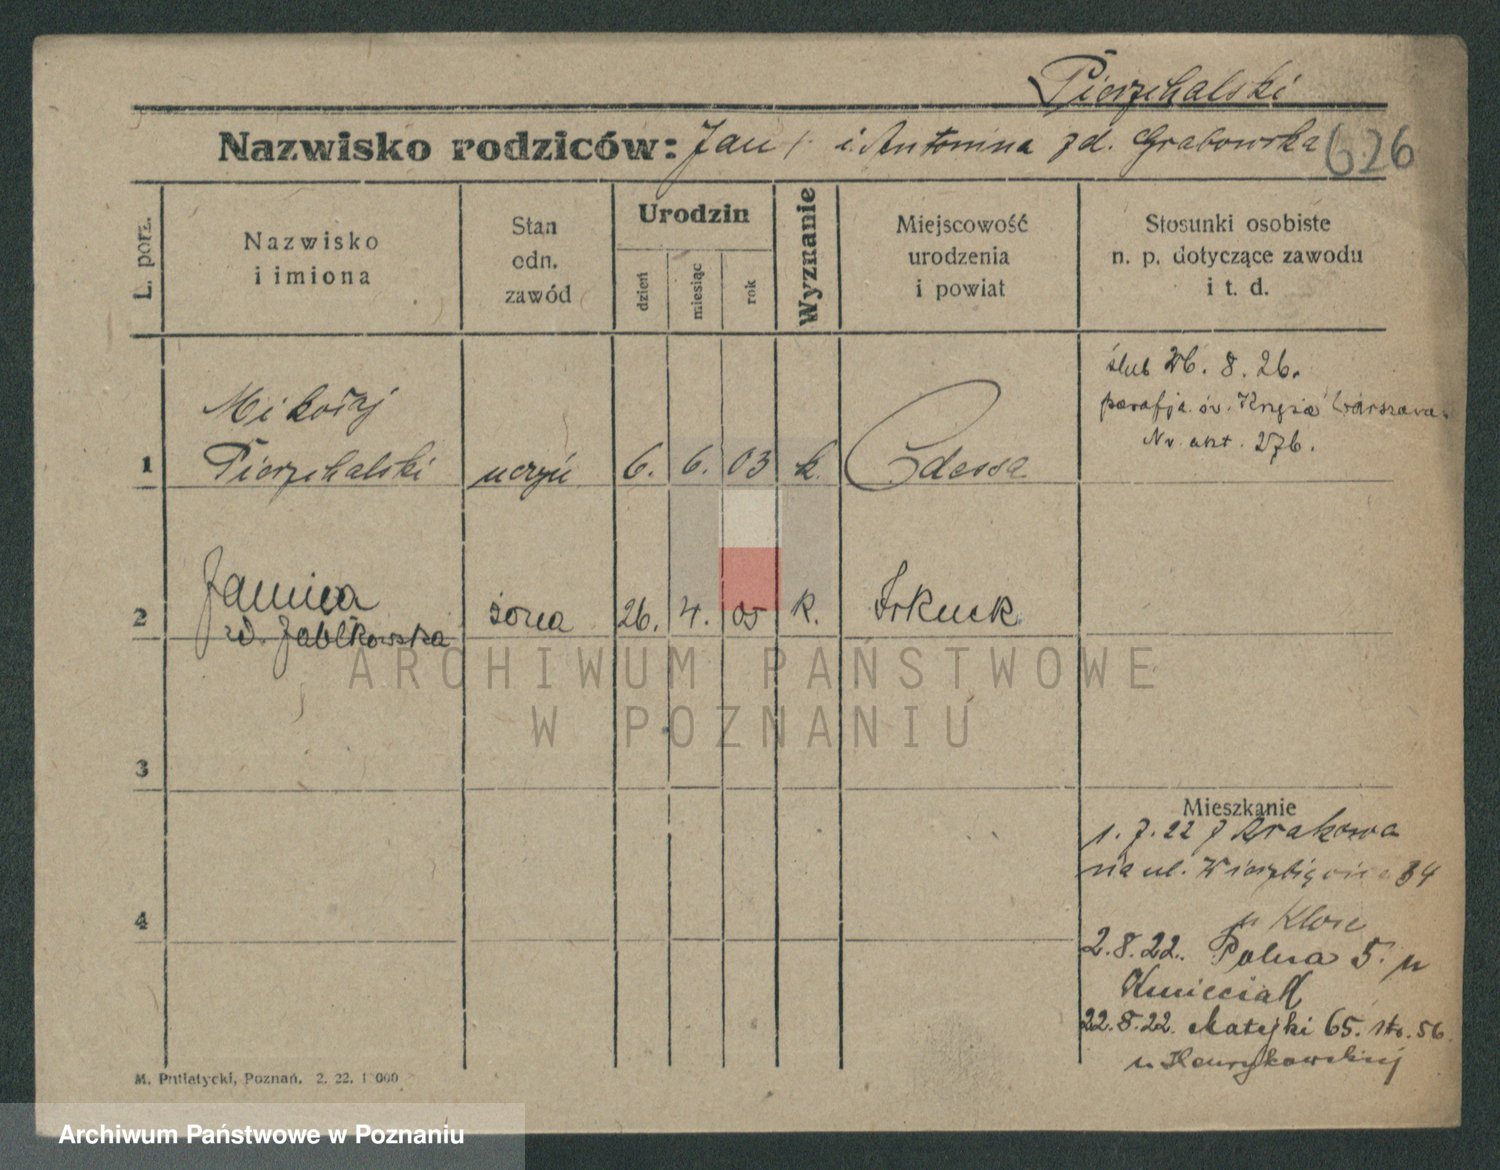 Pierzchalski
Nazwisko rodziców: Jan i Antonina zd. Grabowska 626
L. porz.
Nazwisko
i imiona
Stan
odn.
zawód
Urodzin
dzień
miesiąc
rok
Wyznanie
Miejscowość
urodzenia
i powiat
Stosunki osobiste
n. p. dotyczące zawodu
i t. d.
ślub 26. 8. 26.
parafja św. Warszawa.
Nr. akt. 276.
Mikołaj
1 Pierzchalski uczń 6. 6. 03 k. Odessa
Janina
2 żona 26. 4. 05 k. Irkuck
zd. Jabłkowska
ARCHIWUM PAŃSTWOWE
W POZNANIU
3
Mieszkanie
1. 7. 22 z Krakowa
na ul. 34
4
u Klose
2.8.22. Polna 5. u
Kmieciak
22.8.22. Matejki 65. 56.
u Henrykowskiej
M. Putiatycki, Poznań. 2. 22. 1 000
Archiwum Państwowe w Poznaniu